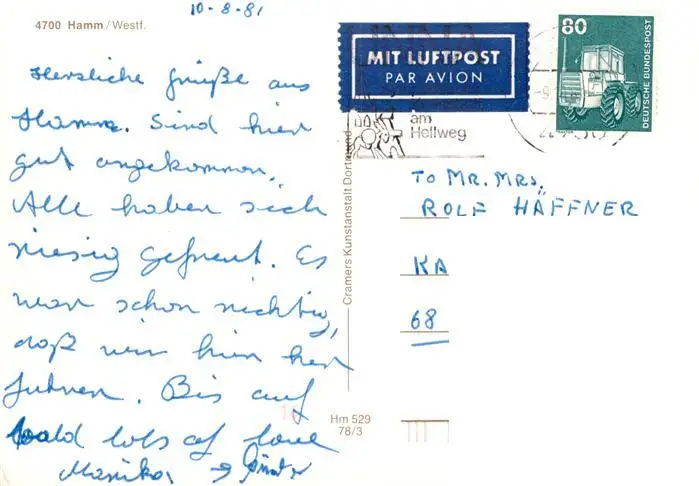 10-8-81
4700 Hamm/Westf.
Herzliche Grüße aus
Hamm. Sind hier
gut angekommen.
Alle haben sich
riesig gefreut. Es
war schon richtig,
daß wir hier her
fuhren. Bis auf
bald lots of love
Monika → Günter
MIT LUFTPOST
PAR AVION
am
Hellweg
80
DEUTSCHE BUNDESPOST
TO MR. MRS.
ROLF HÄFFNER
KA
68
Cramers Kunstanstalt Dortmund
Hm 529
78/3